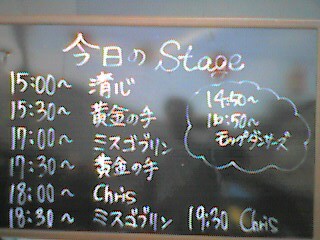 今日のStage
15:00～ 清心
15:30～ 黄金の手
17:00～ ミスゴブリン
17:30～ 黄金の手
18:00～ Chris
18:30～ ミスゴブリン 19:30 Chris
14:50～
16:50～
モップダンサーズ